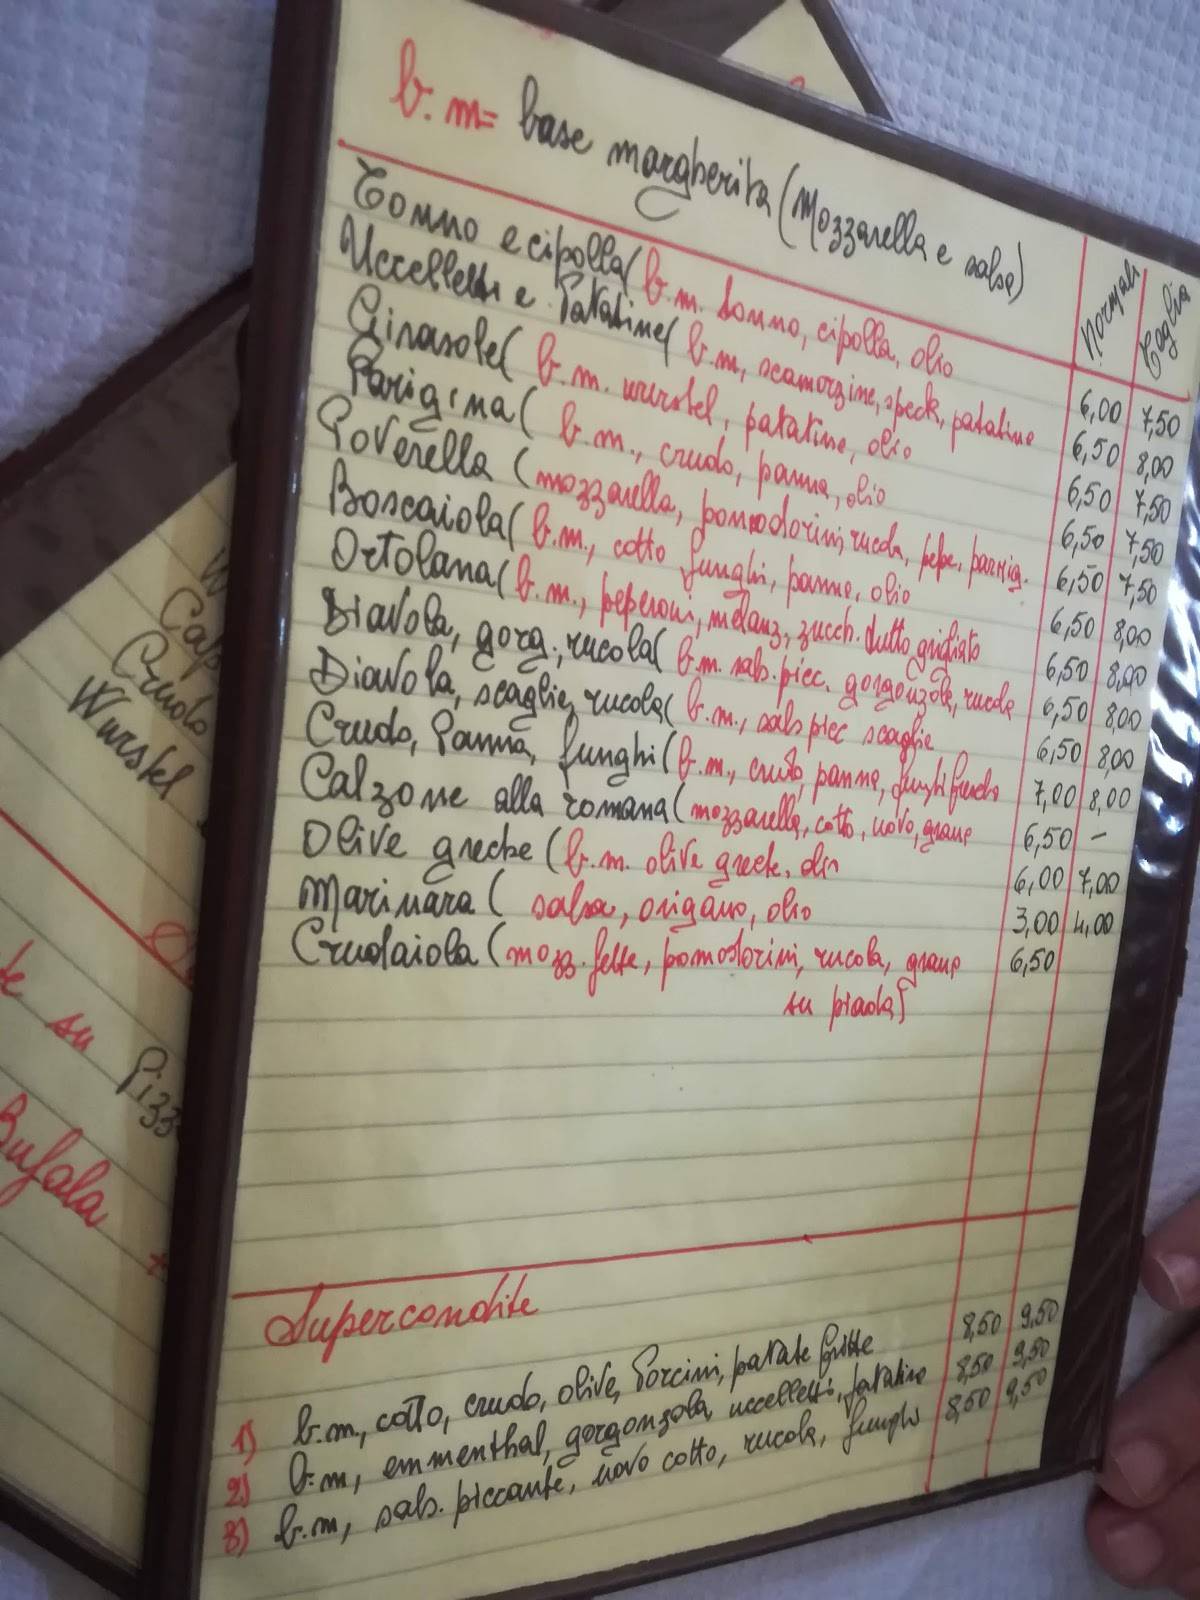 b.m= base margherita (Mozzarella e salsa)
Normali
Taglia
Tonno e cipolla ( b.m. tonno, cipolla, olio 6,00 7,50
Uccelletti e Patatine ( b.m, scamorzine, speck, patatine 6,50 8,00
Girasole ( b.m. wurstel, patatine, olio 6,50 7,50
Parigina ( b.m., crudo, panna, olio 6,50 7,50
Poverella ( mozzarella, pomodorini, rucola, pepe, parmig. 6,50 7,50
Boscaiola ( b.m., cotto funghi, panna, olio 6,50 8,00
Ortolana ( b.m., peperoni, melanz, zucch. tutto grigliato 6,50 8,00
Diavola, gorg., rucola ( b.m. sals. picc. gorgonzola, rucola 6,50 8,00
Diavola, scaglie, rucola ( b.m., sals picc scaglie 6,50 8,00
Crudo, Panna, funghi ( b.m, crudo, panna, funghi freschi 7,00 8,00
Calzone alla romana ( mozzarella, cotto, uovo, grana 6,50 -
Olive greche ( b.m. olive greche, olio 6,00 7,00
Marinara ( salsa, origano, olio 3,00 4,00
Crudaiola ( mozz. fette, pomodorini, rucola, grana 6,50
su piada)
Supercondite
1) b.m., cotto, crudo, olive, Porcini, patate fritte 8,50 9,50
2) b.m, emmenthal, gorgonzola, uccelletti, patatine 8,50 9,50
3) b.m, sals. piccante, uovo cotto, rucola, funghi 8,50 9,50
Crudo
Wurstel
su Pizz
Bufala +